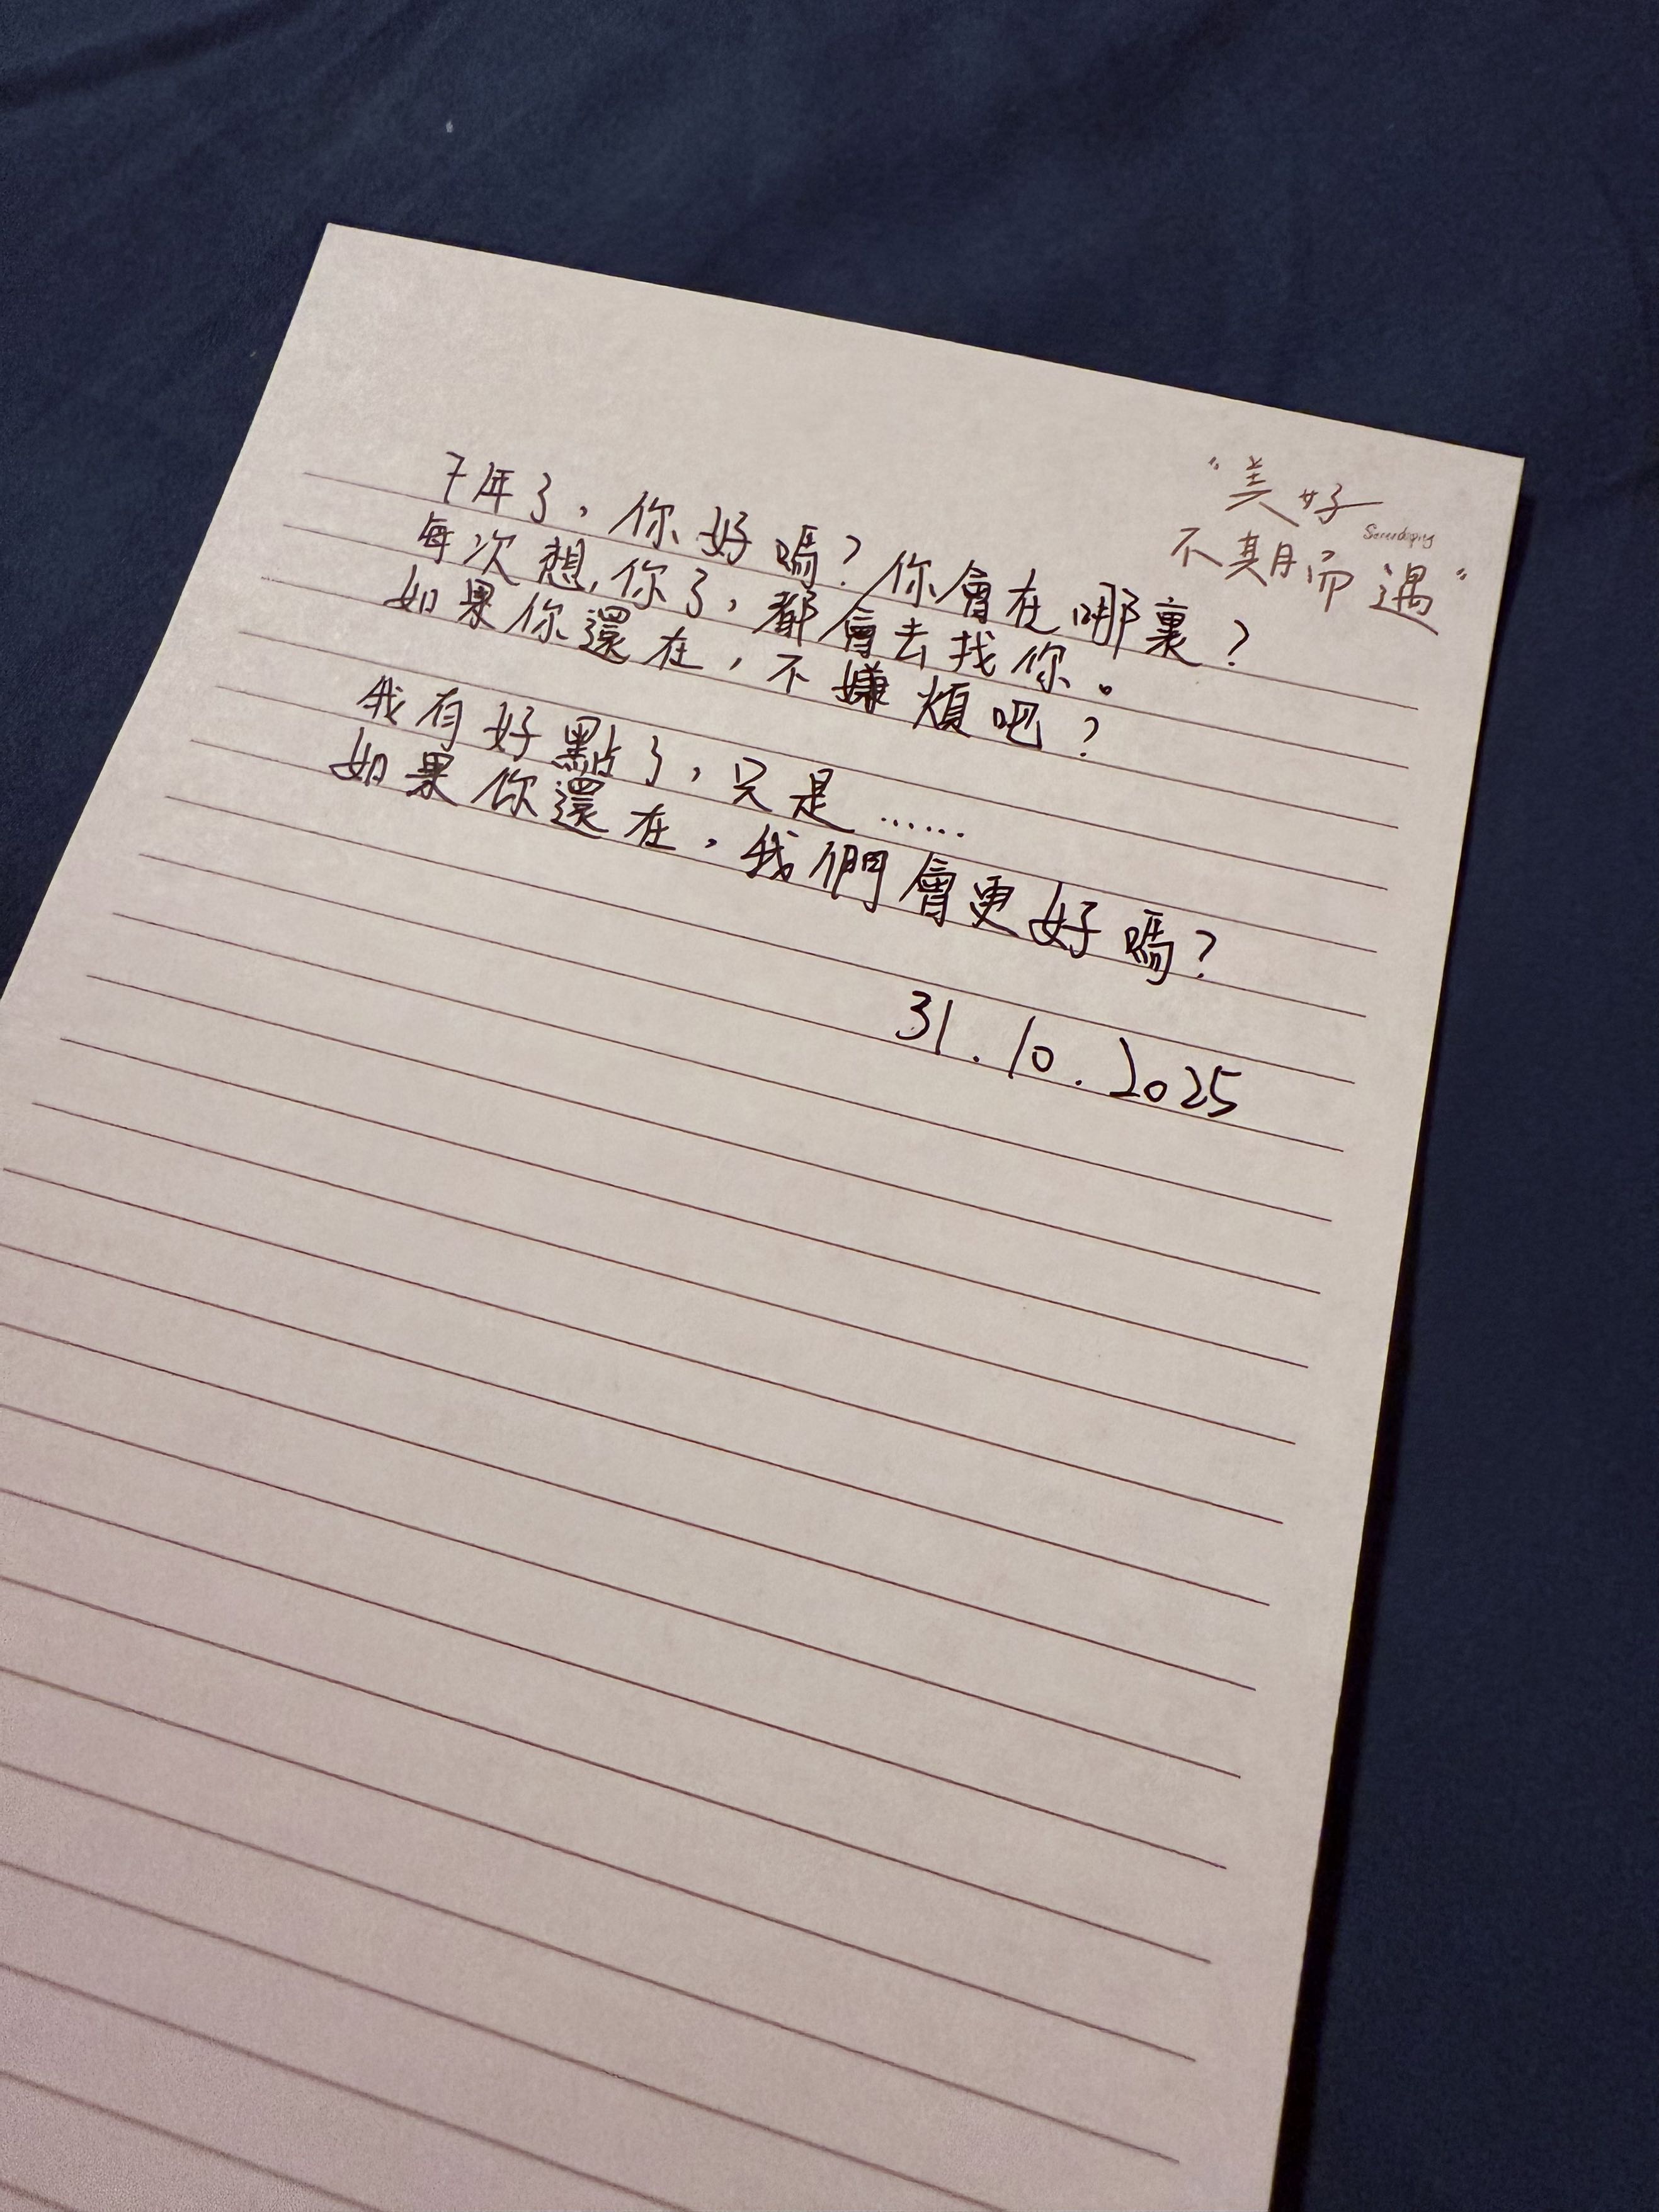 "美好
Serendipity
不期而遇"
七年了，你好嗎？你會在哪裏？
每次想你了，都會去找你。
如果你還在，不嫌煩吧？
我有好點了，只是……
如果你還在，我們會更好嗎？
31.10.2025